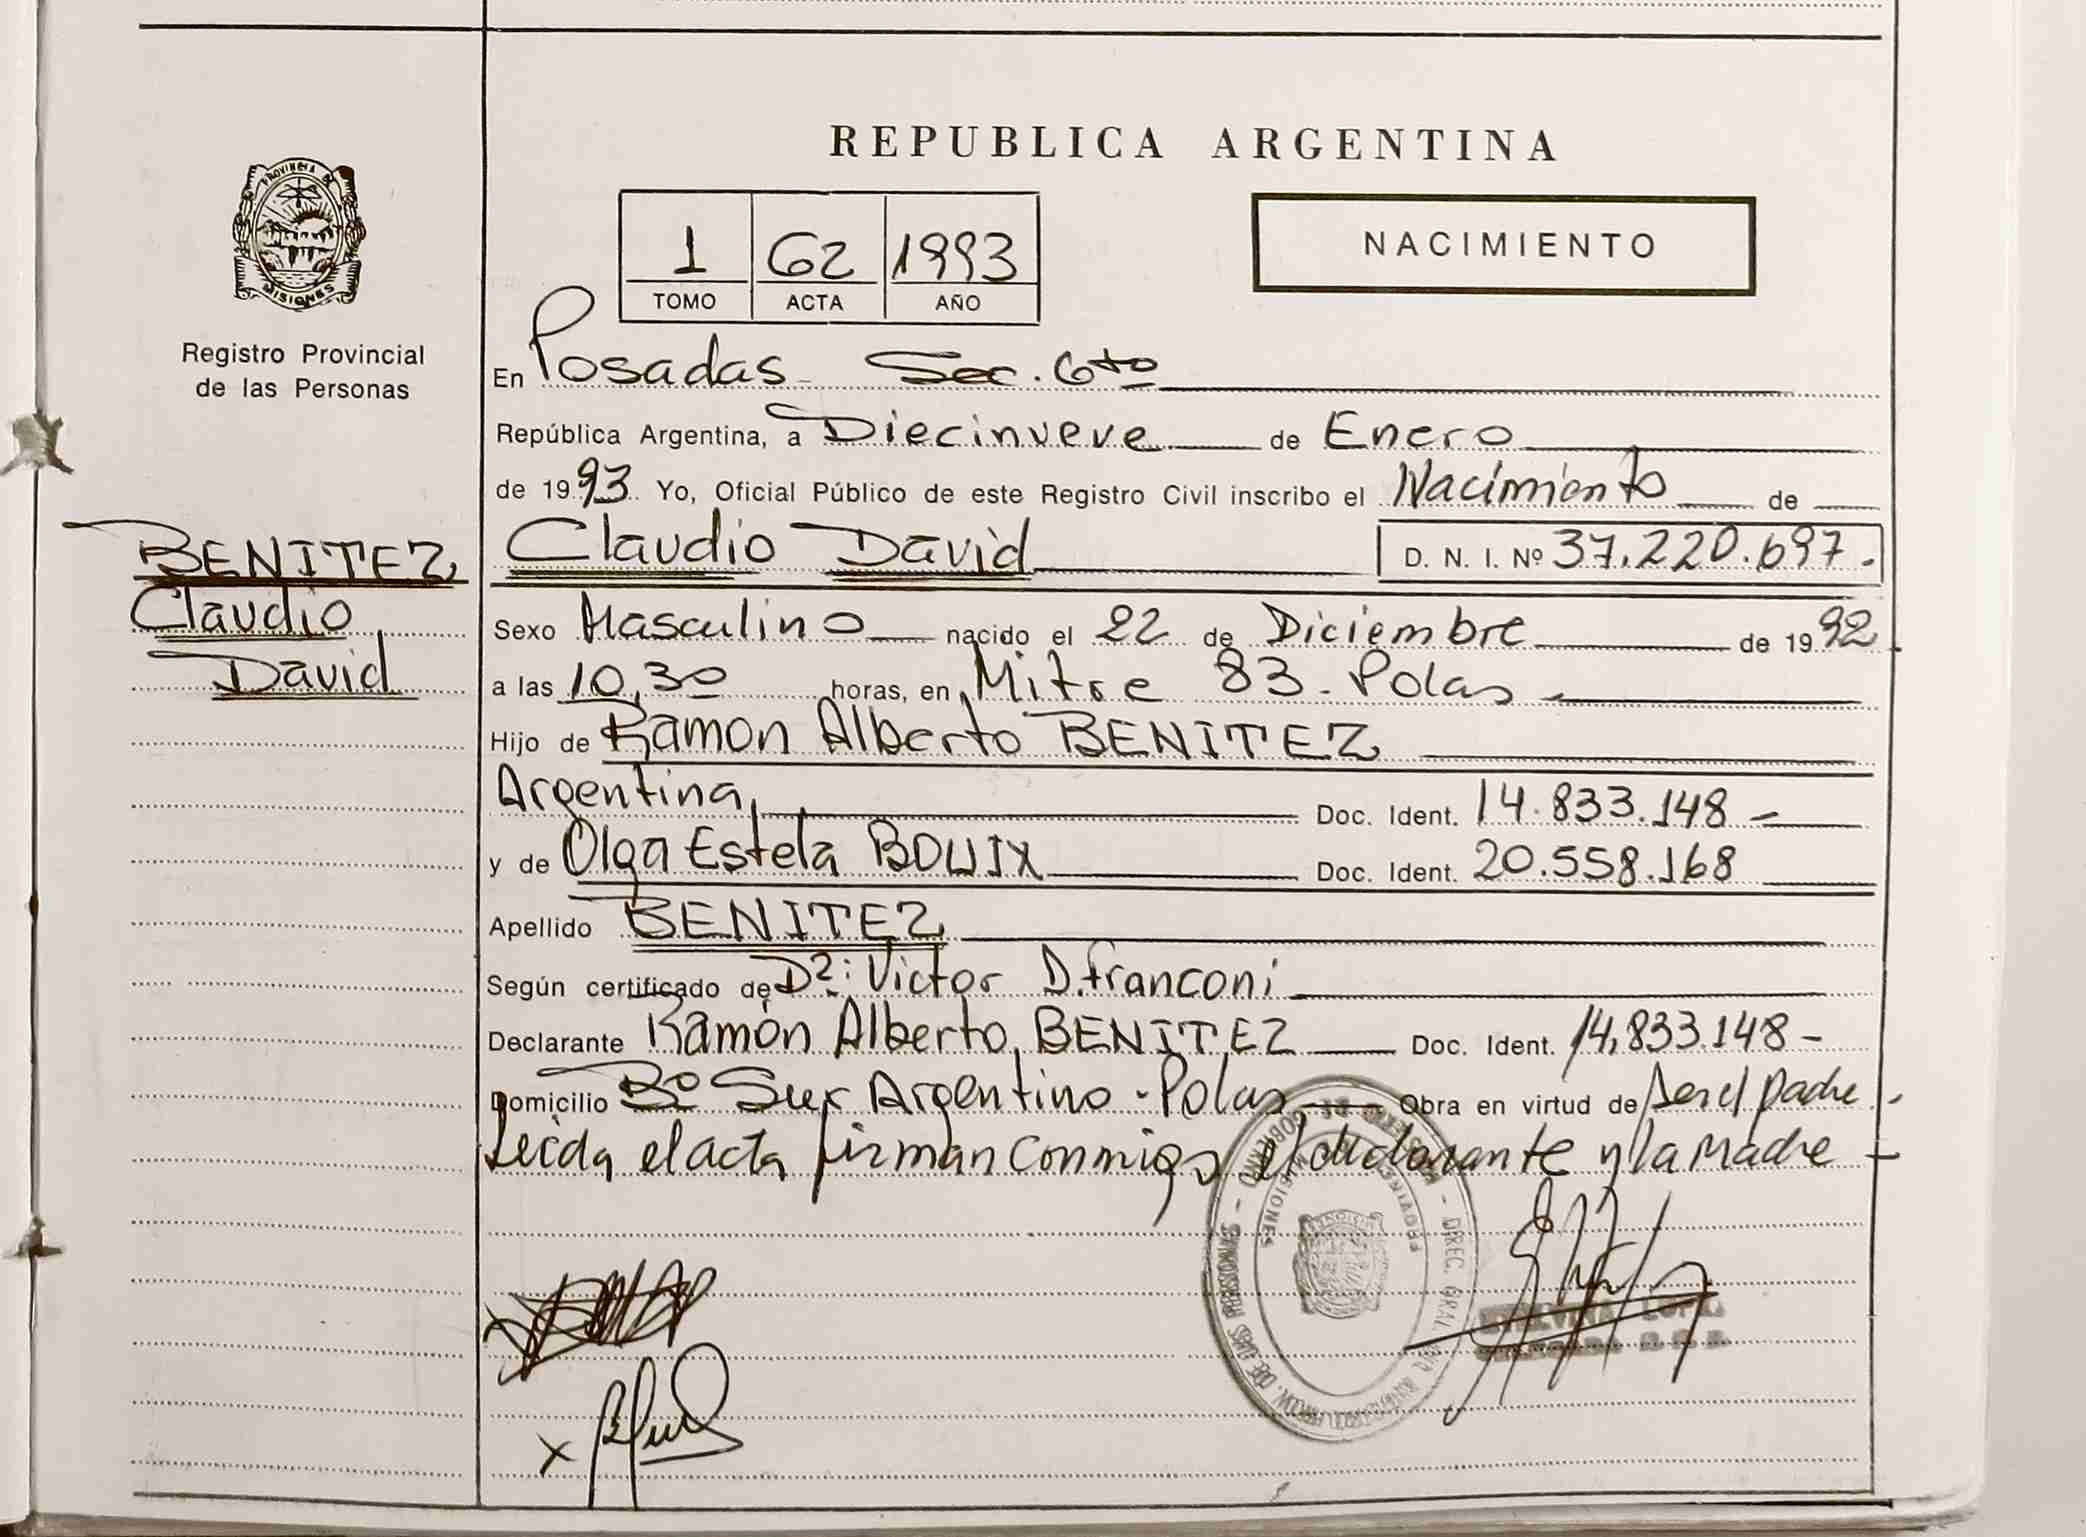 REPUBLICA ARGENTINA
PROVINCIA DE
MISIONES
Registro Provincial
de las Personas
1 62 1993
TOMO ACTA AÑO
NACIMIENTO
En Posadas Sec. 6to
República Argentina, a Diecinueve de Enero
de 1993 Yo, Oficial Público de este Registro Civil inscribo el Nacimiento de
BENITEZ
Claudio
David
Claudio David D. N. I. Nº 37.220.697.
Sexo Masculino nacido el 22 de Diciembre de 1992
a las 10,30 horas, en Mitre 83 - Pdas
Hijo de Ramon Alberto BENITEZ
Argentina, Doc. Ident. 14.833.148 -
y de Olga Estela BOUIX Doc. Ident. 20.558.168
Apellido BENITEZ
Según certificado de Dr: Victor D. Franconi
Declarante Ramón Alberto BENITEZ Doc. Ident. 14.833.148 -
Domicilio Bº Sur Argentino - Pdas, Obra en virtud de ser el padre.
Leida el acta firman conmigo el declarante y la Madre
MISIONES